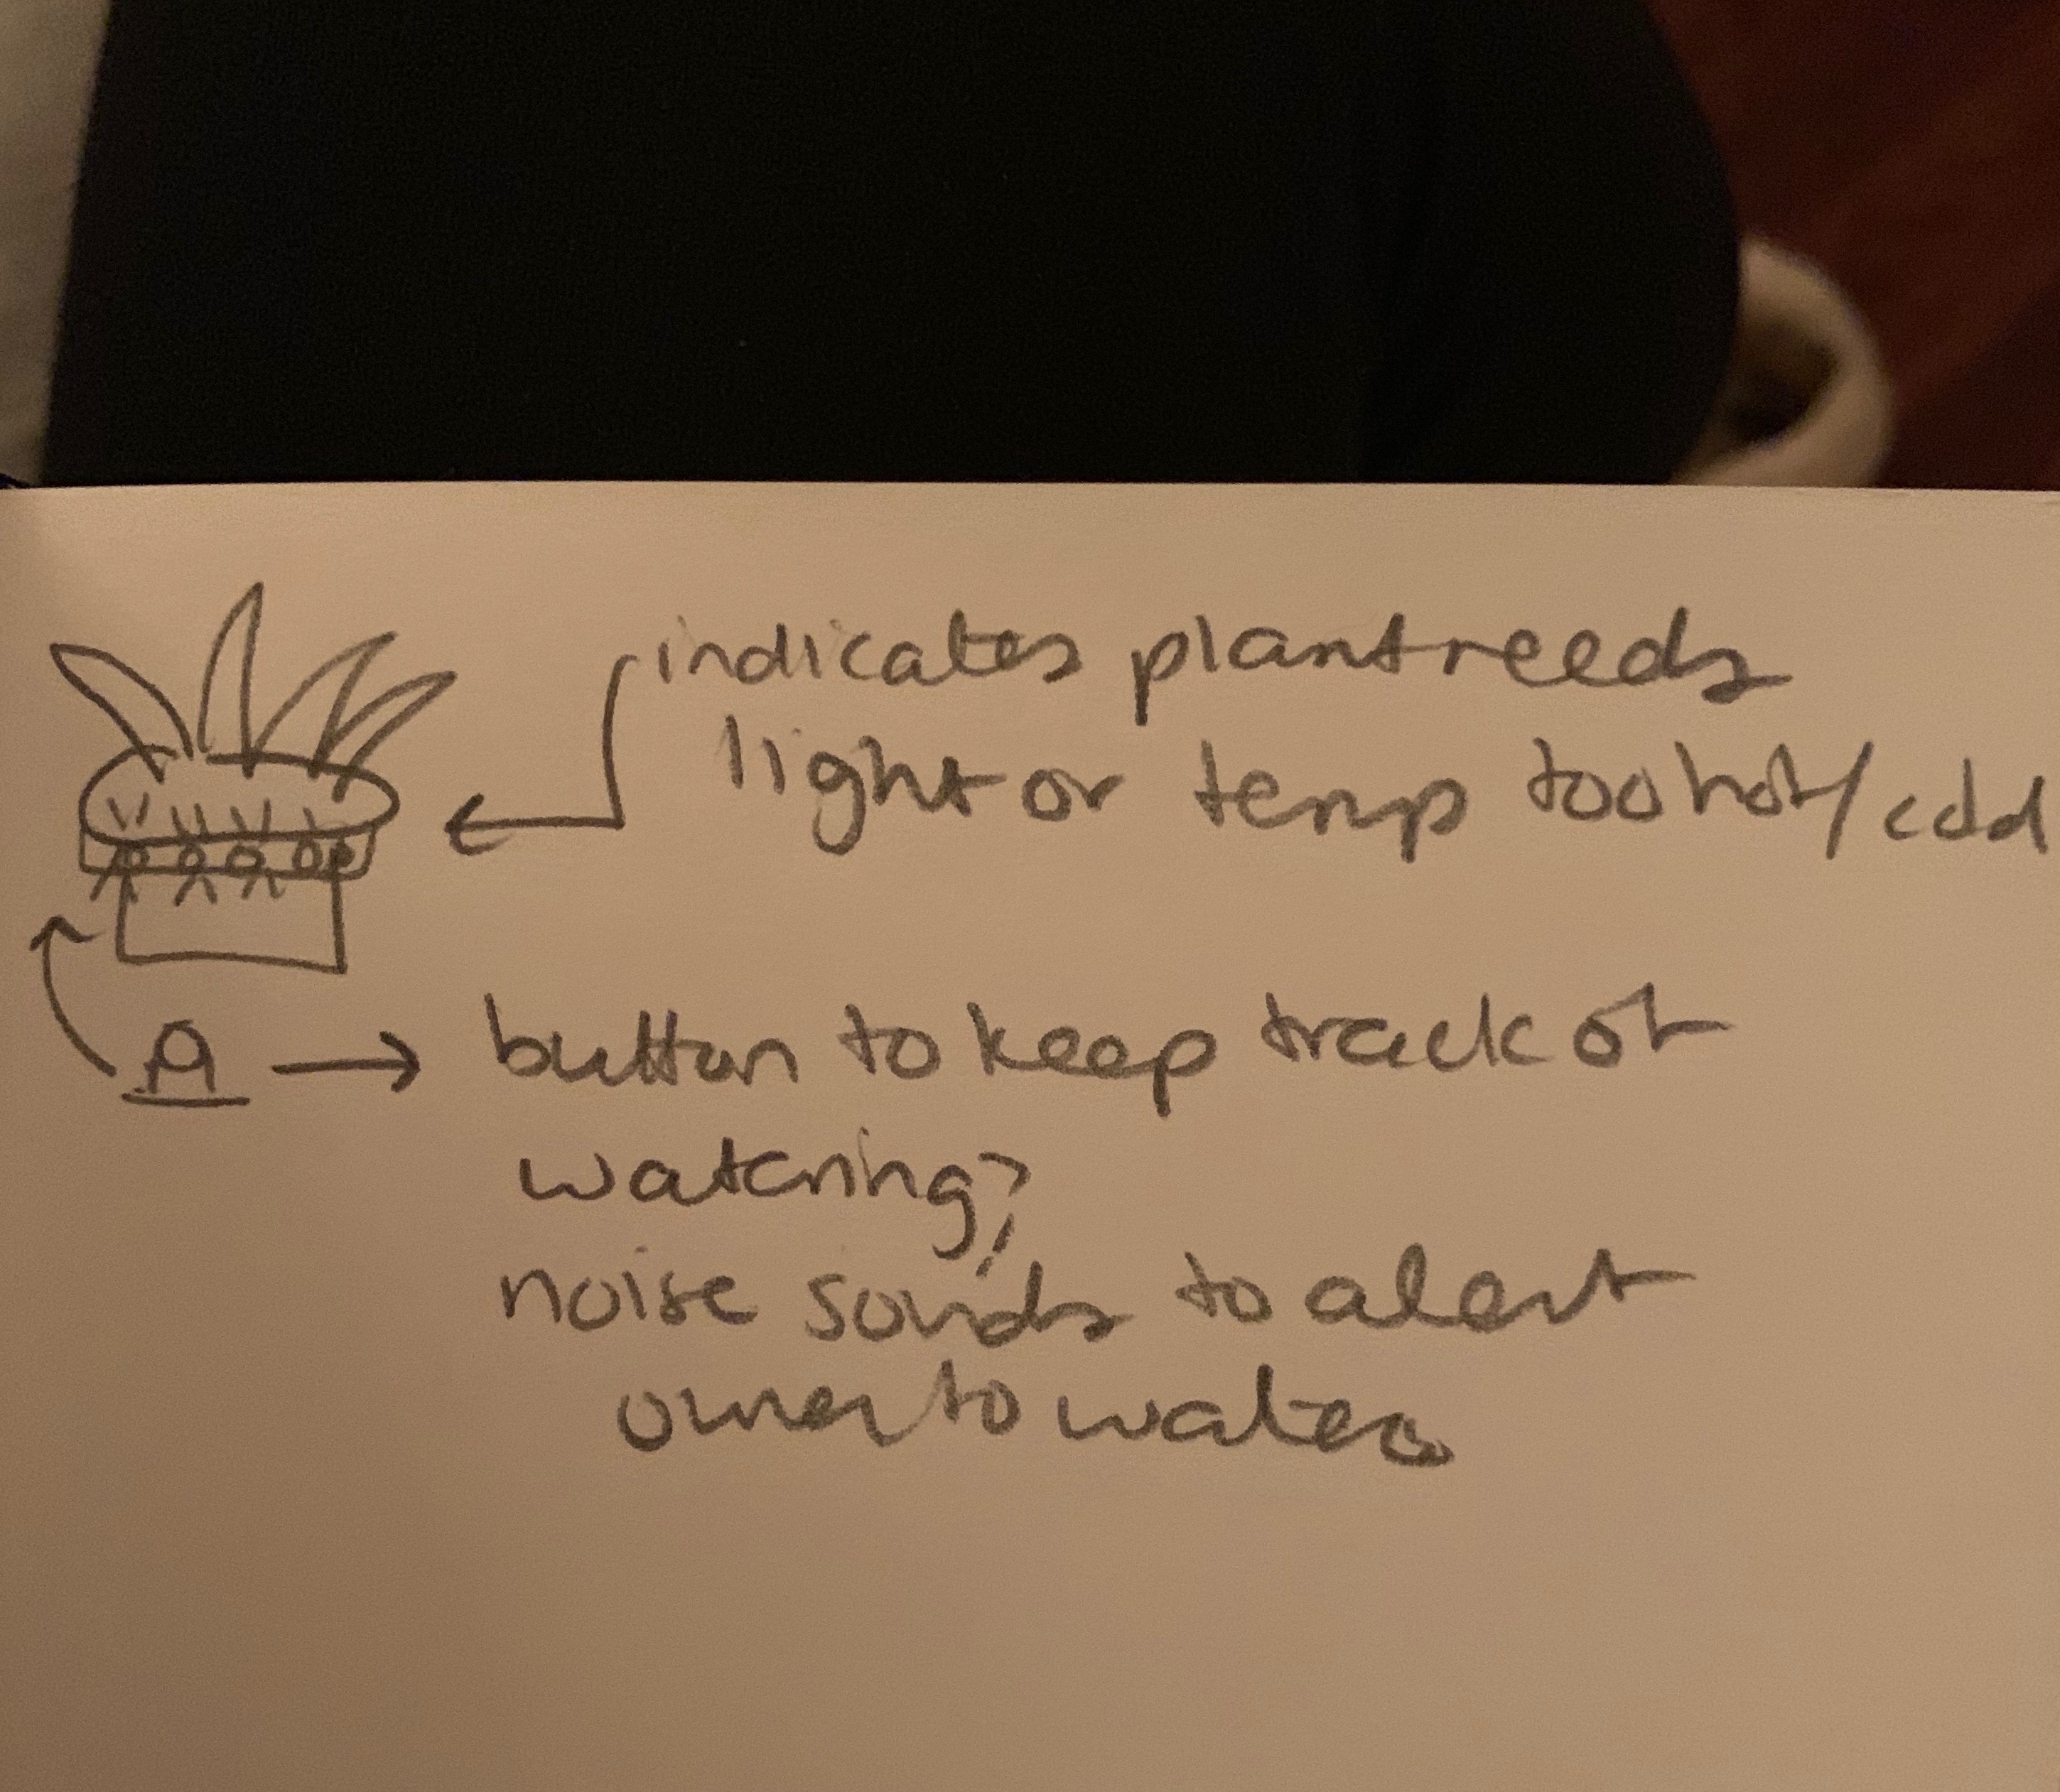 indicates plant needs
light or temp too hot/cold
button to keep track of
watering;
noise sounds to alert
owner to water